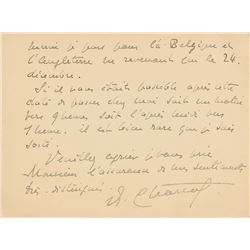 je pars pour la Belgique et
l'Angleterre ne revenant que le 24
décembre.
Si il vous était possible après cette
date de passer chez moi soit un matin
vers 9 heures soit l'après midi vers
heures. il est bien rare que je sois
sorti.
Veuillez agréer je vous prie
Monsieur l'assurance de mes sentiments
très distingués.